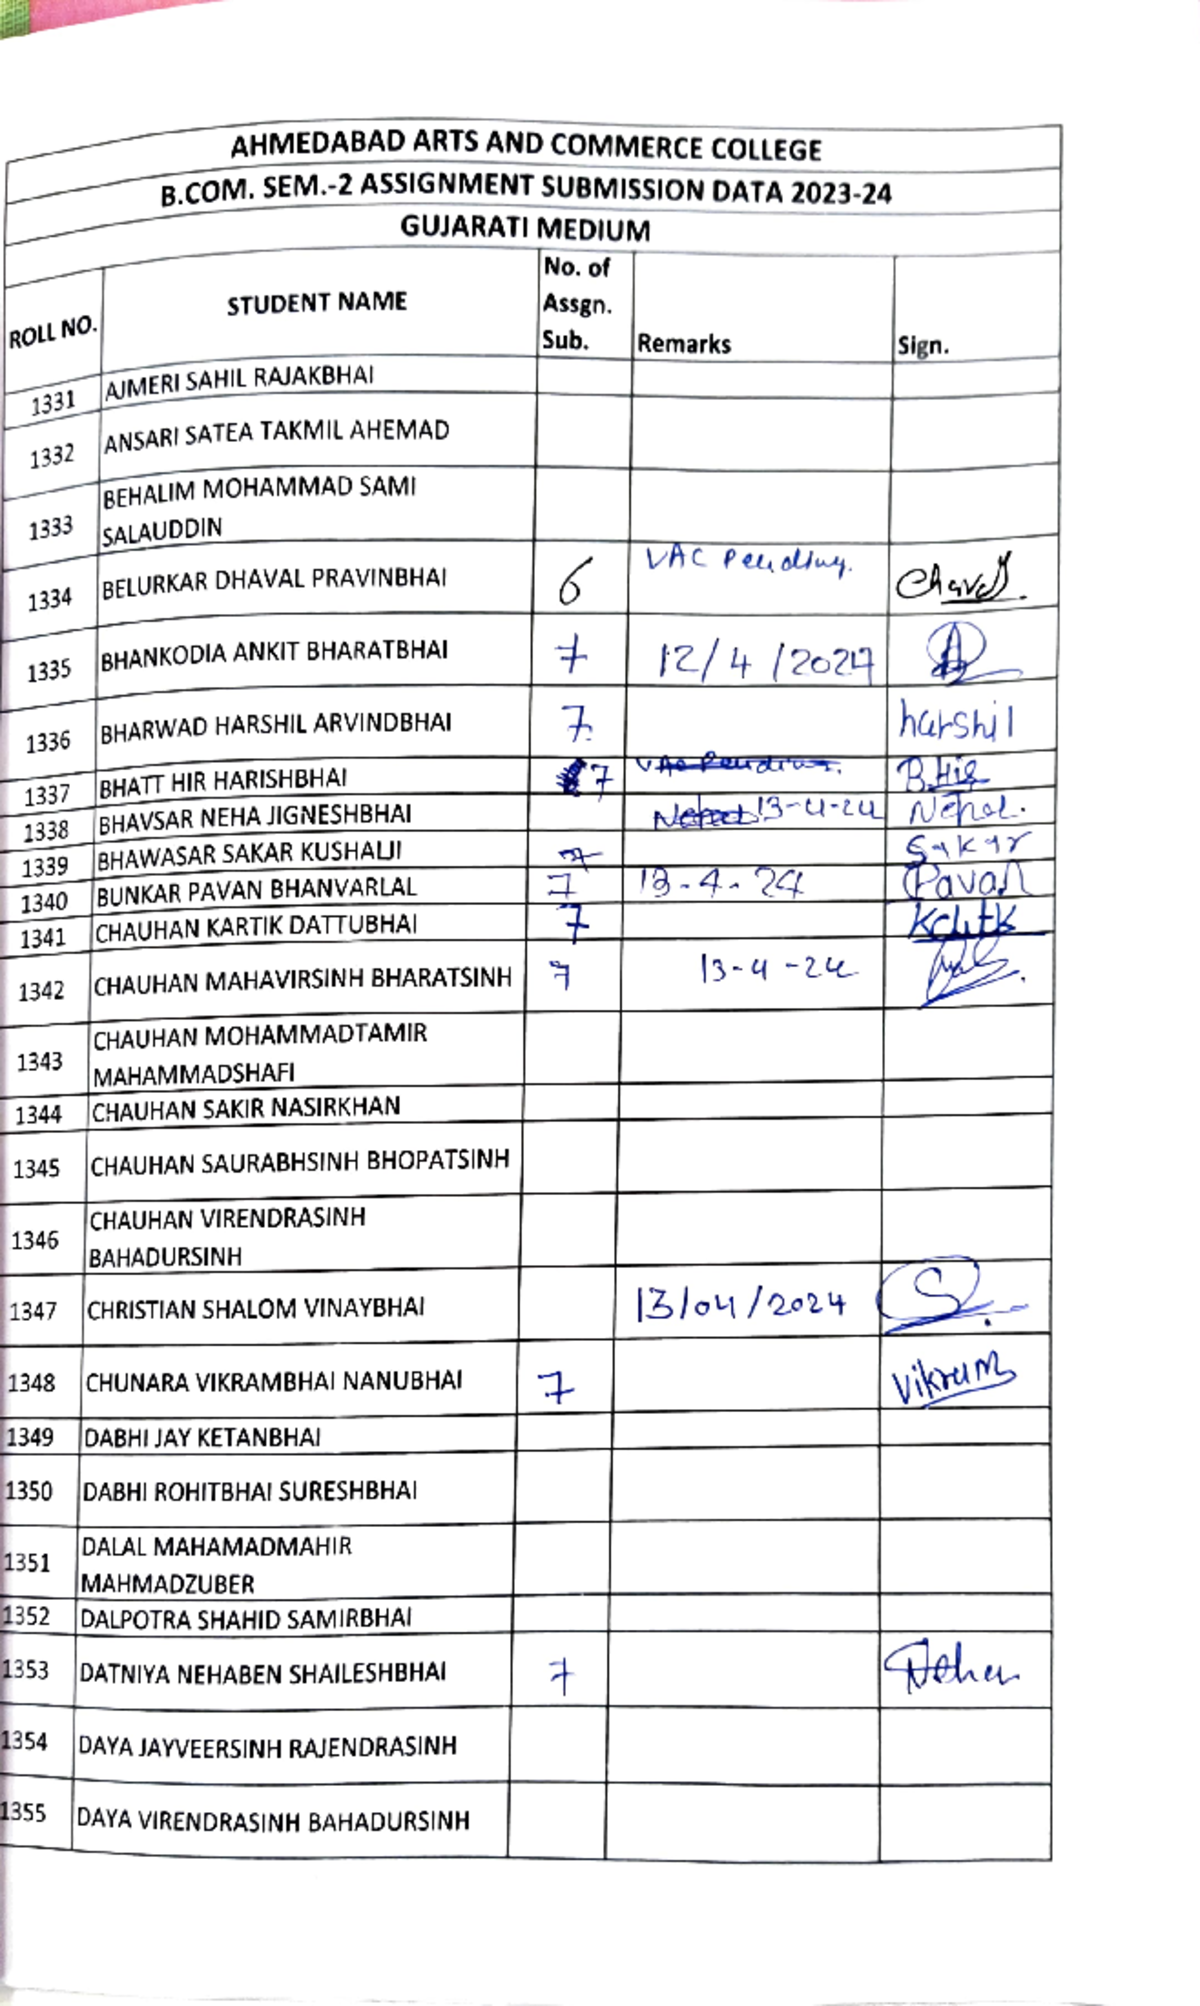 AHMEDABAD ARTS AND COMMERCE COLLEGE
B.COM. SEM.-2 ASSIGNMENT SUBMISSION DATA 2023-24
GUJARATI MEDIUM
ROLL NO. STUDENT NAME No. of Assgn. Sub. Remarks Sign.
1331 AJMERI SAHIL RAJAKBHAI
1332 ANSARI SATEA TAKMIL AHEMAD
1333 BEHALIM MOHAMMAD SAMI
SALAUDDIN
1334 BELURKAR DHAVAL PRAVINBHAI 6 VAC Pending.
1335 BHANKODIA ANKIT BHARATBHAI 7 12/4/2024
1336 BHARWAD HARSHIL ARVINDBHAI 7 harshil
1337 BHATT HIR HARISHBHAI 7 VAC Pending. B.Hir
1338 BHAVSAR NEHA JIGNESHBHAI 13-4-24
1339 BHAWASAR SAKAR KUSHALJI 7 Sakar
1340 BUNKAR PAVAN BHANVARLAL 7 13-4-24 Pavan
1341 CHAUHAN KARTIK DATTUBHAI 7
1342 CHAUHAN MAHAVIRSINH BHARATSINH 7 13-4-24
1343 CHAUHAN MOHAMMADTAMIR
MAHAMMADSHAFI
1344 CHAUHAN SAKIR NASIRKHAN
1345 CHAUHAN SAURABHSINH BHOPATSINH
1346 CHAUHAN VIRENDRASINH
BAHADURSINH
1347 CHRISTIAN SHALOM VINAYBHAI 13/04/2024
1348 CHUNARA VIKRAMBHAI NANUBHAI 7 Vikram
1349 DABHI JAY KETANBHAI
1350 DABHI ROHITBHAI SURESHBHAI
1351 DALAL MAHAMADMAHIR
MAHMADZUBER
1352 DALPOTRA SHAHID SAMIRBHAI
1353 DATNIYA NEHABEN SHAILESHBHAI 7
1354 DAYA JAYVEERSINH RAJENDRASINH
1355 DAYA VIRENDRASINH BAHADURSINH